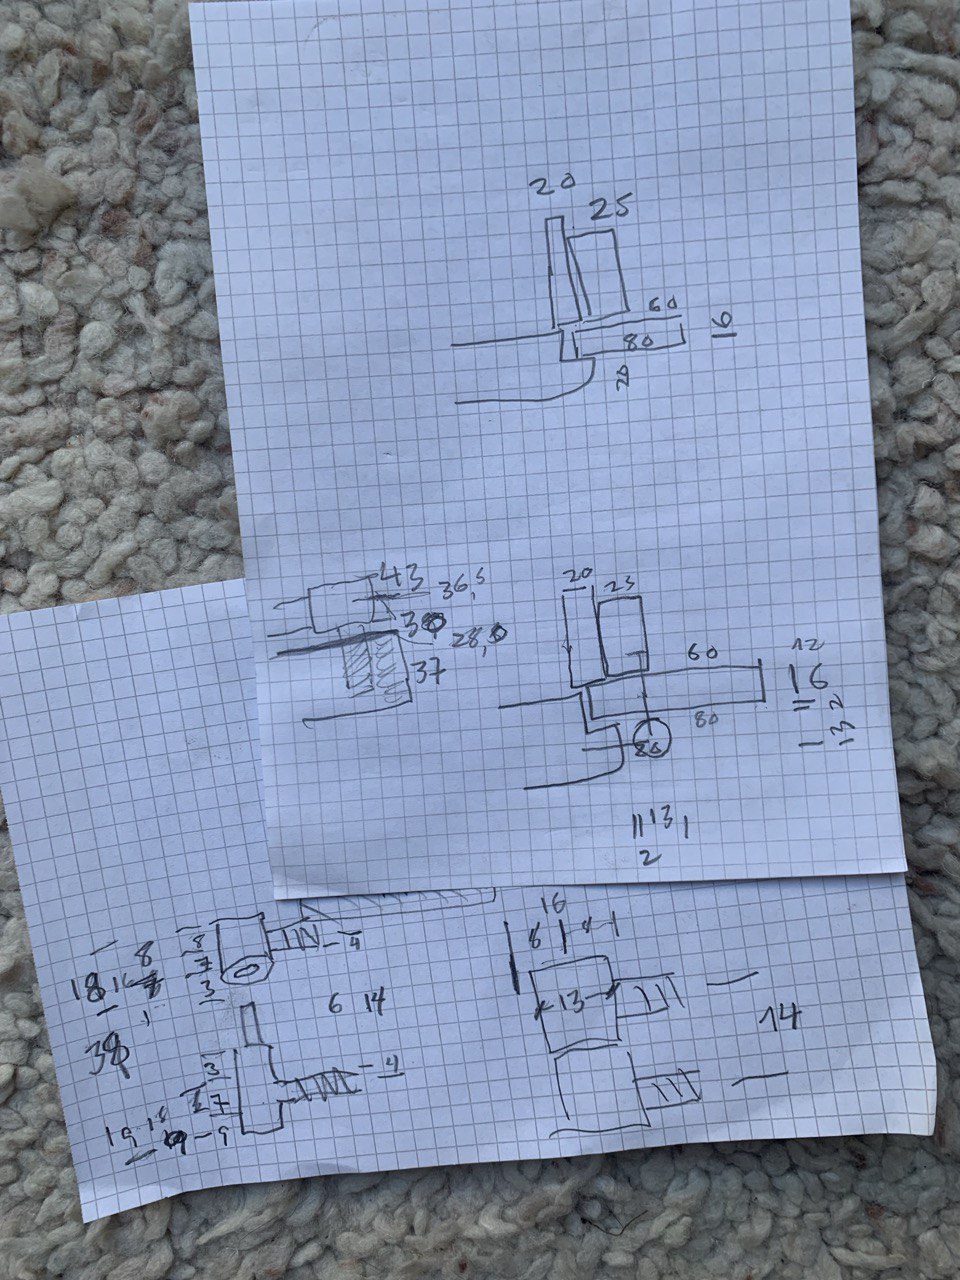 20
25
60
80
20
16
43
36,5
30
28,0
37
20
25
60
80
12
16
2
13
20
11 13 1
2
16
8 8
13
14
8
7
3
4
18 16
8
38
6 14
3
7
9
4
19 18